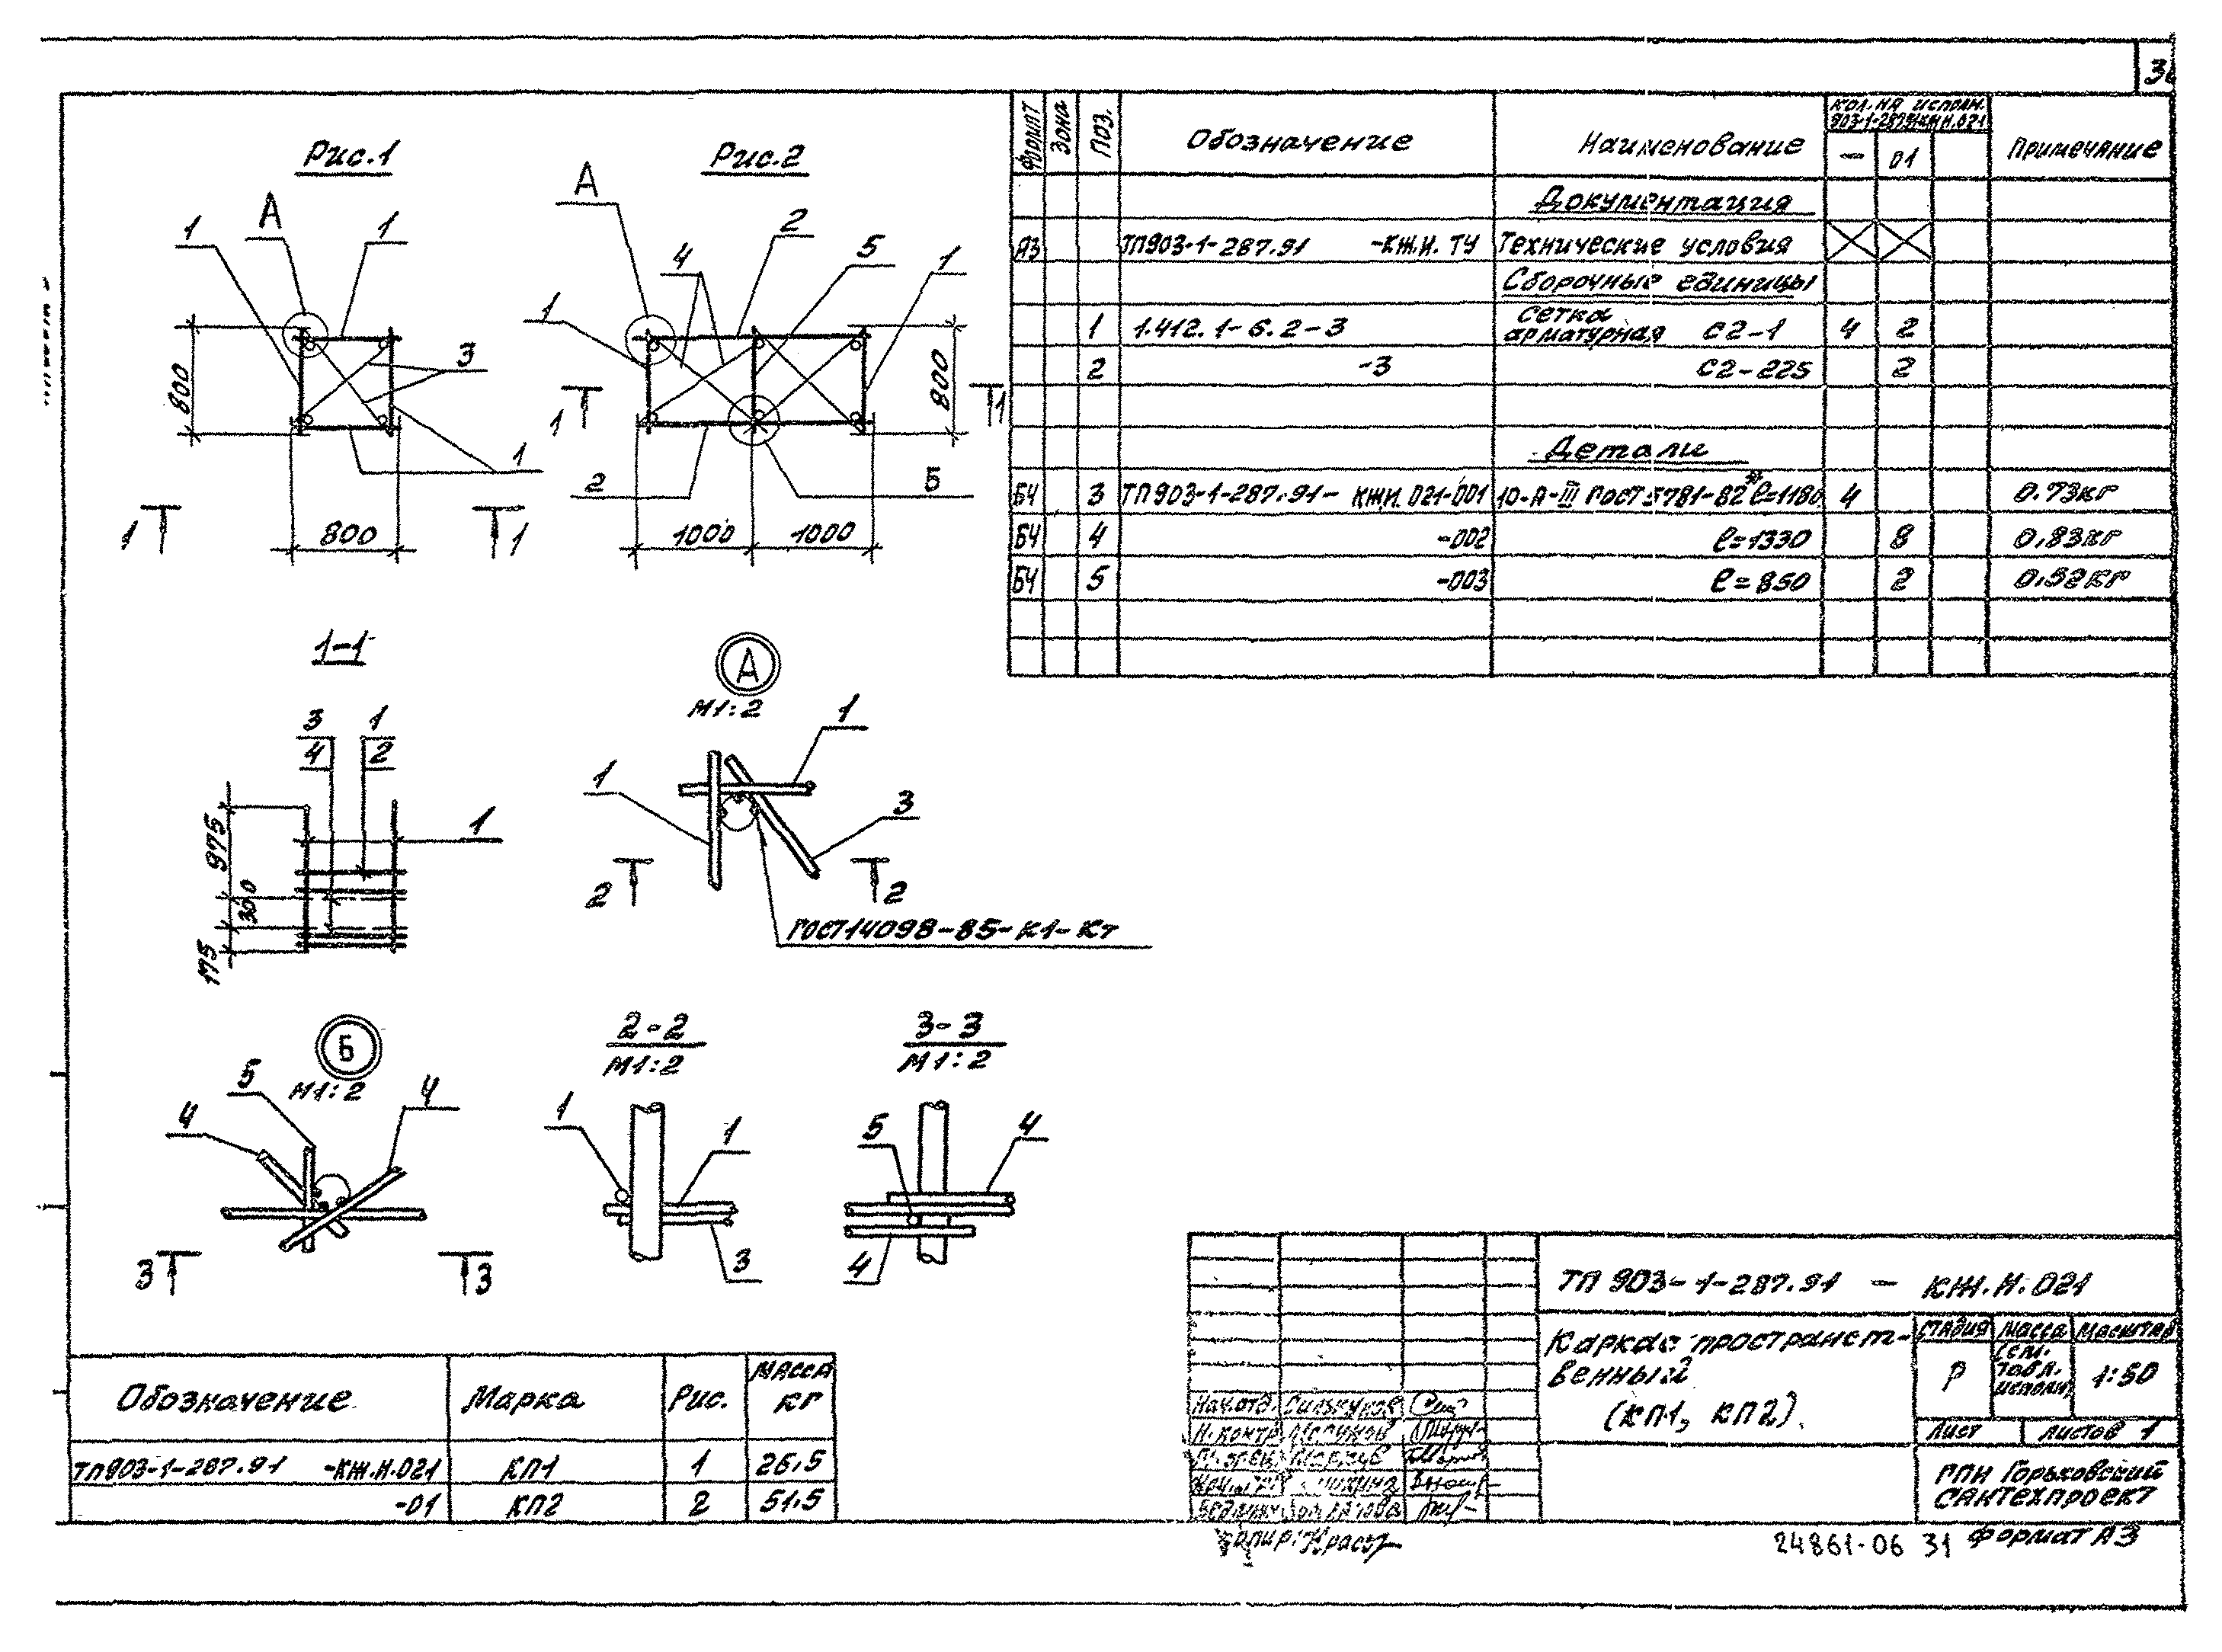 Рис.1
А
1
1
3
800
1
1
1
800
Рис.2
А
2
5
4
1
1
800
1
1
2
Б
1000
1000
1-1
3
4
1
2
1
975
300
175
А
М1:2
1
1
3
2
2
ГОСТ14098-85-К1-Кт
Б
М1:2
5
4
4
3
3
2-2
М1:2
1
1
3
3-3
М1:2
5
4
4
Формат Зона Поз. Обозначение Наименование Кол. на исполн. 903-1-287.91КЖ.И.021 Примечание
— 01
Документация
А3 ТП903-1-287.91 -КЖ.И. ТУ Технические условия
Сборочные единицы
1 1.412.1-6.2-3 Сетка арматурная С2-1 4 2
2 -3 С2-225 2
Детали
БЧ 3 ТП903-1-287.91- КЖИ.021-001 10-А-III ГОСТ5781-82* ℓ=1180 4 0.73кг
БЧ 4 -002 ℓ=1330 8 0,83кг
БЧ 5 -003 ℓ=850 2 0,52кг
Обозначение Марка Рис. Масса кг
ТП903-1-287.91 -КЖ.И.021 КП1 1 26,5
-01 КП2 2 51,5
ТП 903-1-287.91 — КЖ.И.021
Каркас пространст-
венный
(КП1, КП2).
Стадия Масса Масштаб
Р См. табл. исполн. 1:50
Лист Листов 1
ГПИ Горьковский
Сантехпроект
Нач.отд.
Н.контр
24861-06 31 Формат А3